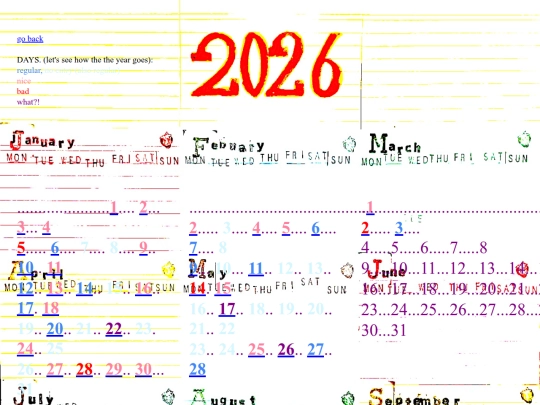 go back
2026
DAYS. (let's see how the the year goes):
regular,
nice
bad
what?!
January
MON TUE WED THU FRI SAT SUN
.......................1... 2...
3... 4
5..... 6... 7... 8.....9...
10... 11
12.. 13... 14... 15... 16...
17.. 18
19... 20... 21... 22... 23
24.. 25
26... 27... 28... 29... 30...
31
Febuary
MON TUE WED THU FRI SAT SUN
2..... 3..... 4.... 5.... 6....
7..... 8
11.. 12.. 13..
14.. 15
16.. 17.. 18.. 19.. 20..
21.. 22
23... 24... 25... 26... 27..
28
March
MON TUE WED THU FRI SAT SUN
1
2..... 3.....
4.....5.....6....7....8
9...10...11...12...13...14...
16...17...18...19...20...21...
23...24...25...26...27...28...
30...31
April
MON TUE WED THU FRI SAT SUN
May
MON TUE WED THU FRI SAT SUN
June
MON TUE WED THU FRI SAT SUN
July
August
September